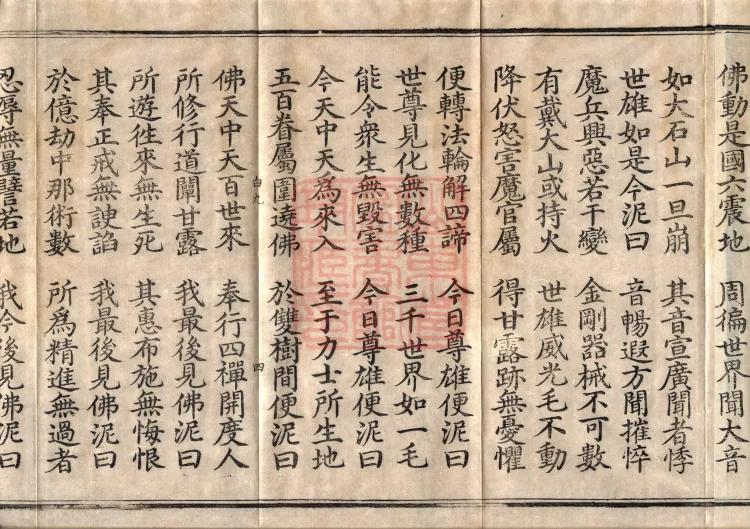 佛動是國六震地　周徧世界聞大音
如大石山一旦崩　其音宣廣聞者悸
世雄如是今泥曰　音暢遐方聞摧悴
魔兵興惡若干變　金剛器械不可數
有戴大山或持火　世雄威光毛不動
降伏怒害魔官屬　得甘露跡無憂懼
便轉法輪解四諦　今日尊雄便泥曰
世尊見化無數種　三千世界如一毛
能令衆生無毀害　今日尊雄便泥曰
今天中天為來入　至于力士所生地
五百眷屬圍遶佛　於雙樹間便泥曰
白九　四
佛天中天百世來　奉行四禪開度人
所修行道闡甘露　我最後見佛泥曰
所遊徃來無生死　其惠布施無悔恨
其奉正戒無諛諂　我最後見佛泥曰
於億劫中那術數　所為精進無過者
忍辱無量譬若地　我今後見佛泥曰